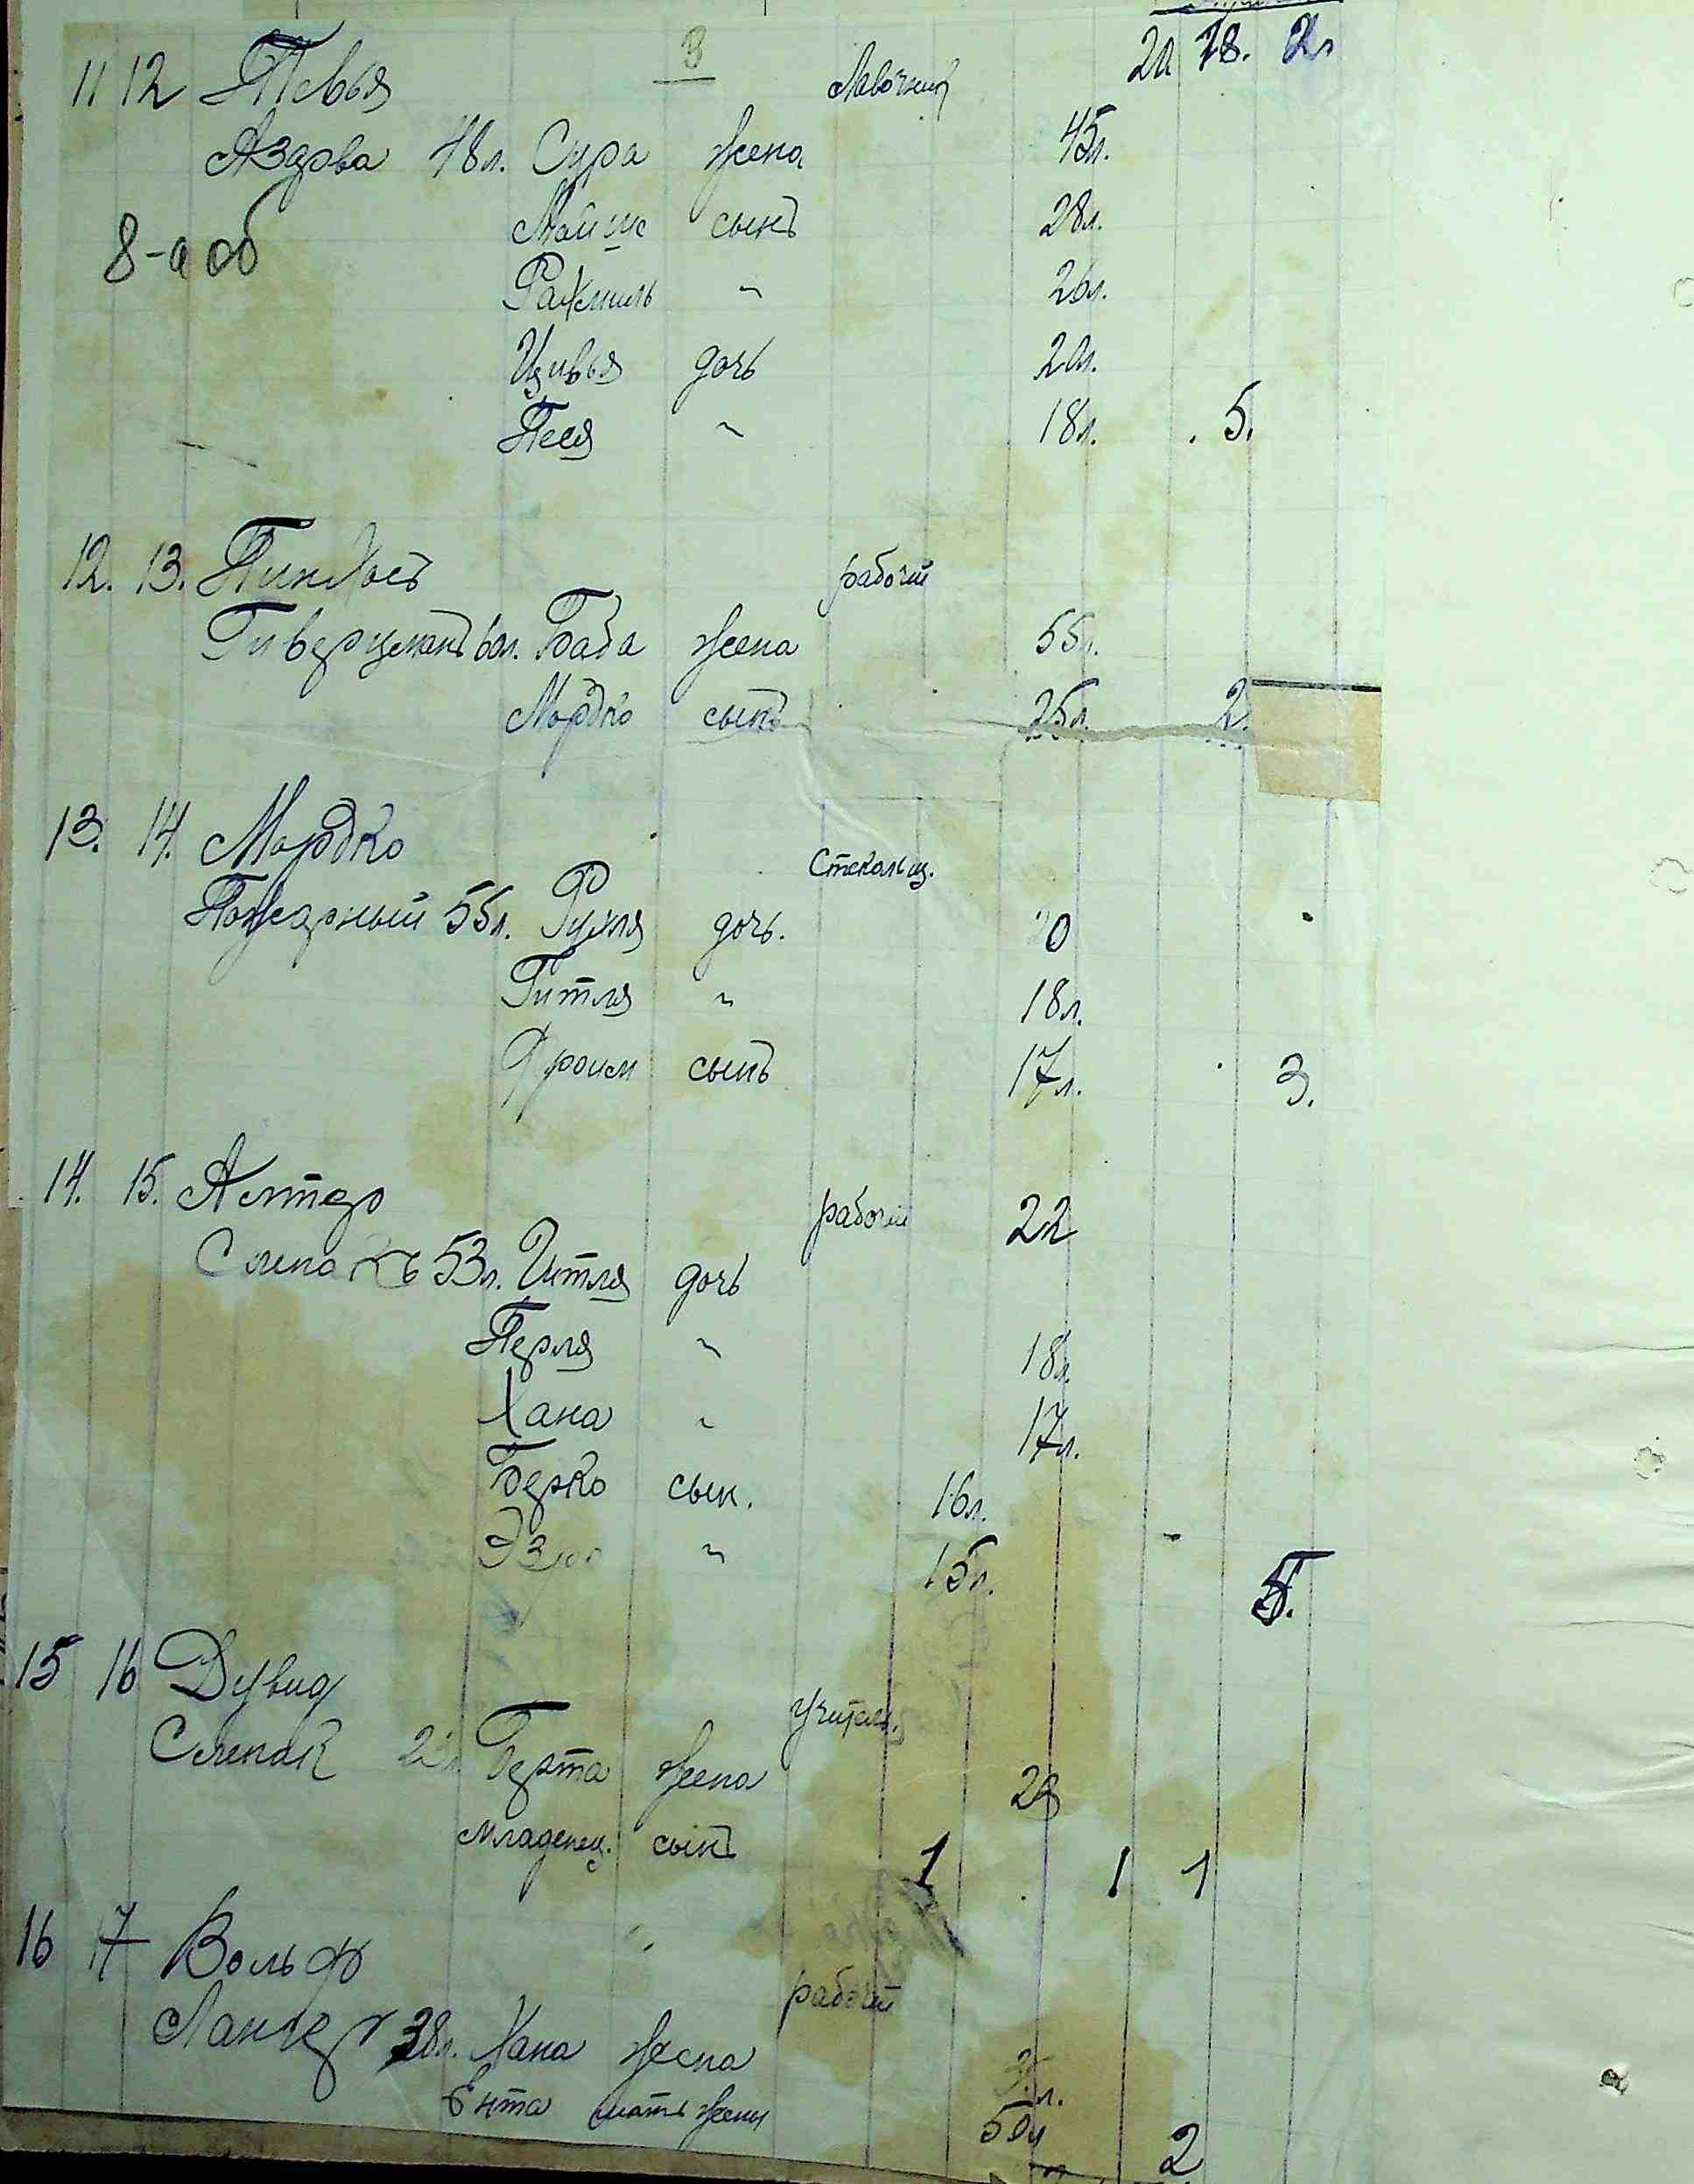 3
20 18. 2л
11 12 Тевья Лавочник
Аздова 48л. Сура жена 45л.
Мойше сын 28л.
8-а об
Рахмиль " 26л.
Цивья дочь 20л.
Песя " 18л. 5.
12. 13. Пинхос рабочий
Гиверцман 60л. Баба жена 55л.
Мордко сын 25л. 2.
13. 14. Мордко Стекольщ.
Пожарный 55л. Рухля дочь. 20
Гитля " 18л.
Фроим сынъ 17л. 3.
14. 15. Алтер рабочий 22
Слепакъ 53л. Итля дочь
Перля " 18л.
Хана " 17л.
Берко сын. 16л.
Эзра " 15л. 5.
15 16 Дувид учитель.
Слепак Берта жена 23
младенец. сынъ 1 1 1
16 17 Вольф рабочий
38л. Хана жена л.
Ента мать жены 50л 2